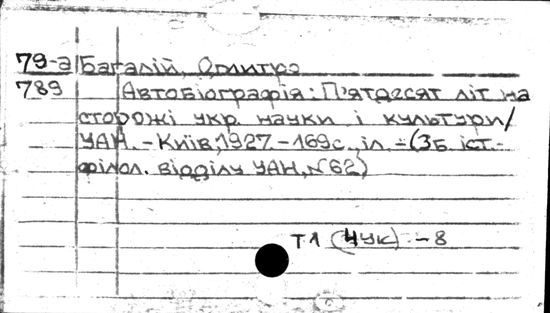 79-а Багалій, Дмитро
789 Автобіографія: П'ятдесят літ на
сторожі укр. науки і культури/
УАН. - Київ, 1927. - 169с., іл. - (Зб. іст.-
філол. відділу УАН, №62)
Т1 (4УК) - 8